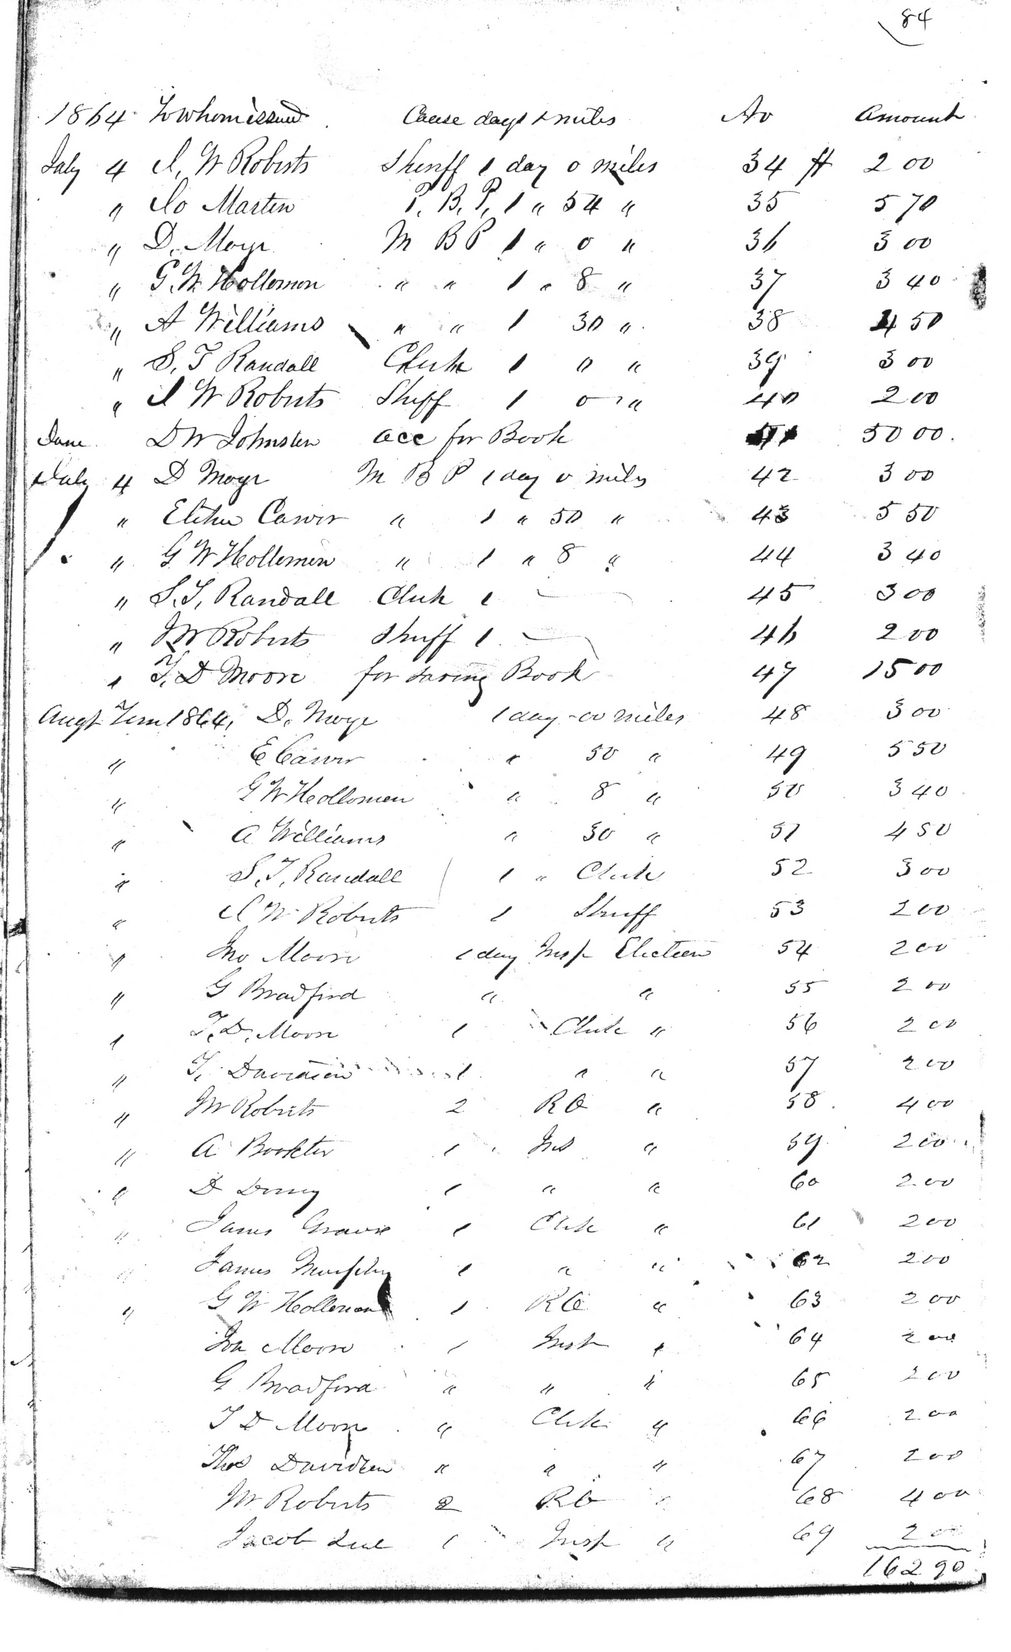 84
1864 To whom issued Cause days & miles No Amount
July 4 I. W Roberts Sheriff 1 day 0 miles 34 ff 2 00
" Jo Martin P. B. P. 1 " 54 " 35 5 70
" D. Moye M B P 1 " 0 " 36 3 00
" G. W. Hollomon " " 1 " 8 " 37 3 40
" A Williams " " 1 30 " 38 4 50
" S. T Randall Clerk 1 0 " 39 3 00
" I W Roberts Shff 1 0 " 40 2 00
June D W Johnston acc for Book 41 50 00.
July 4 D Moye M B P 1 day 0 miles 42 3 00
" Elihu Carver " 1 " 50 " 43 5 50
" G W Hollomon " 1 " 8 " 44 3 40
" S. T. Randall Clerk 1 45 3 00
" I W Roberts Shuff 1 46 2 00
" T. D Moore for Book 47 15 00
Augt Term 1864, D. Moye 1 day 00 miles 48 3 00
" E Carver " 50 " 49 5 50
" G W Hollomon " 8 " 50 3 40
" A Williams " 30 " 51 4 50
" S. T. Randall 1 " Clerk 52 3 00
" I W Roberts 1 Shuff 53 2 00
" Jno Moore 1 day Insp Election 54 2 00
" G Bradford " " 55 2 00
" T. D. Moore 1 Clerk " 56 2 00
" T. Davidson 1 " " 57 2 00
" I W Roberts 2 R O " 58 4 00
" A Bookter 1 Ins " 59 2 00
" D 1 " " 60 2 00
" James 1 Clk " 61 2 00
" James Murphy 1 " " 62 2 00
" G W Hollomon 1 R O " 63 2 00
Jno Moore 1 Insp " 64 2 00
G Bradford " " " 65 2 00
T D Moore " Clk " 66 2 00
Thos Davidson " " " 67 2 00
I W Roberts 2 R O " 68 4 00
Jacob 1 Insp " 69 2 00
162 90